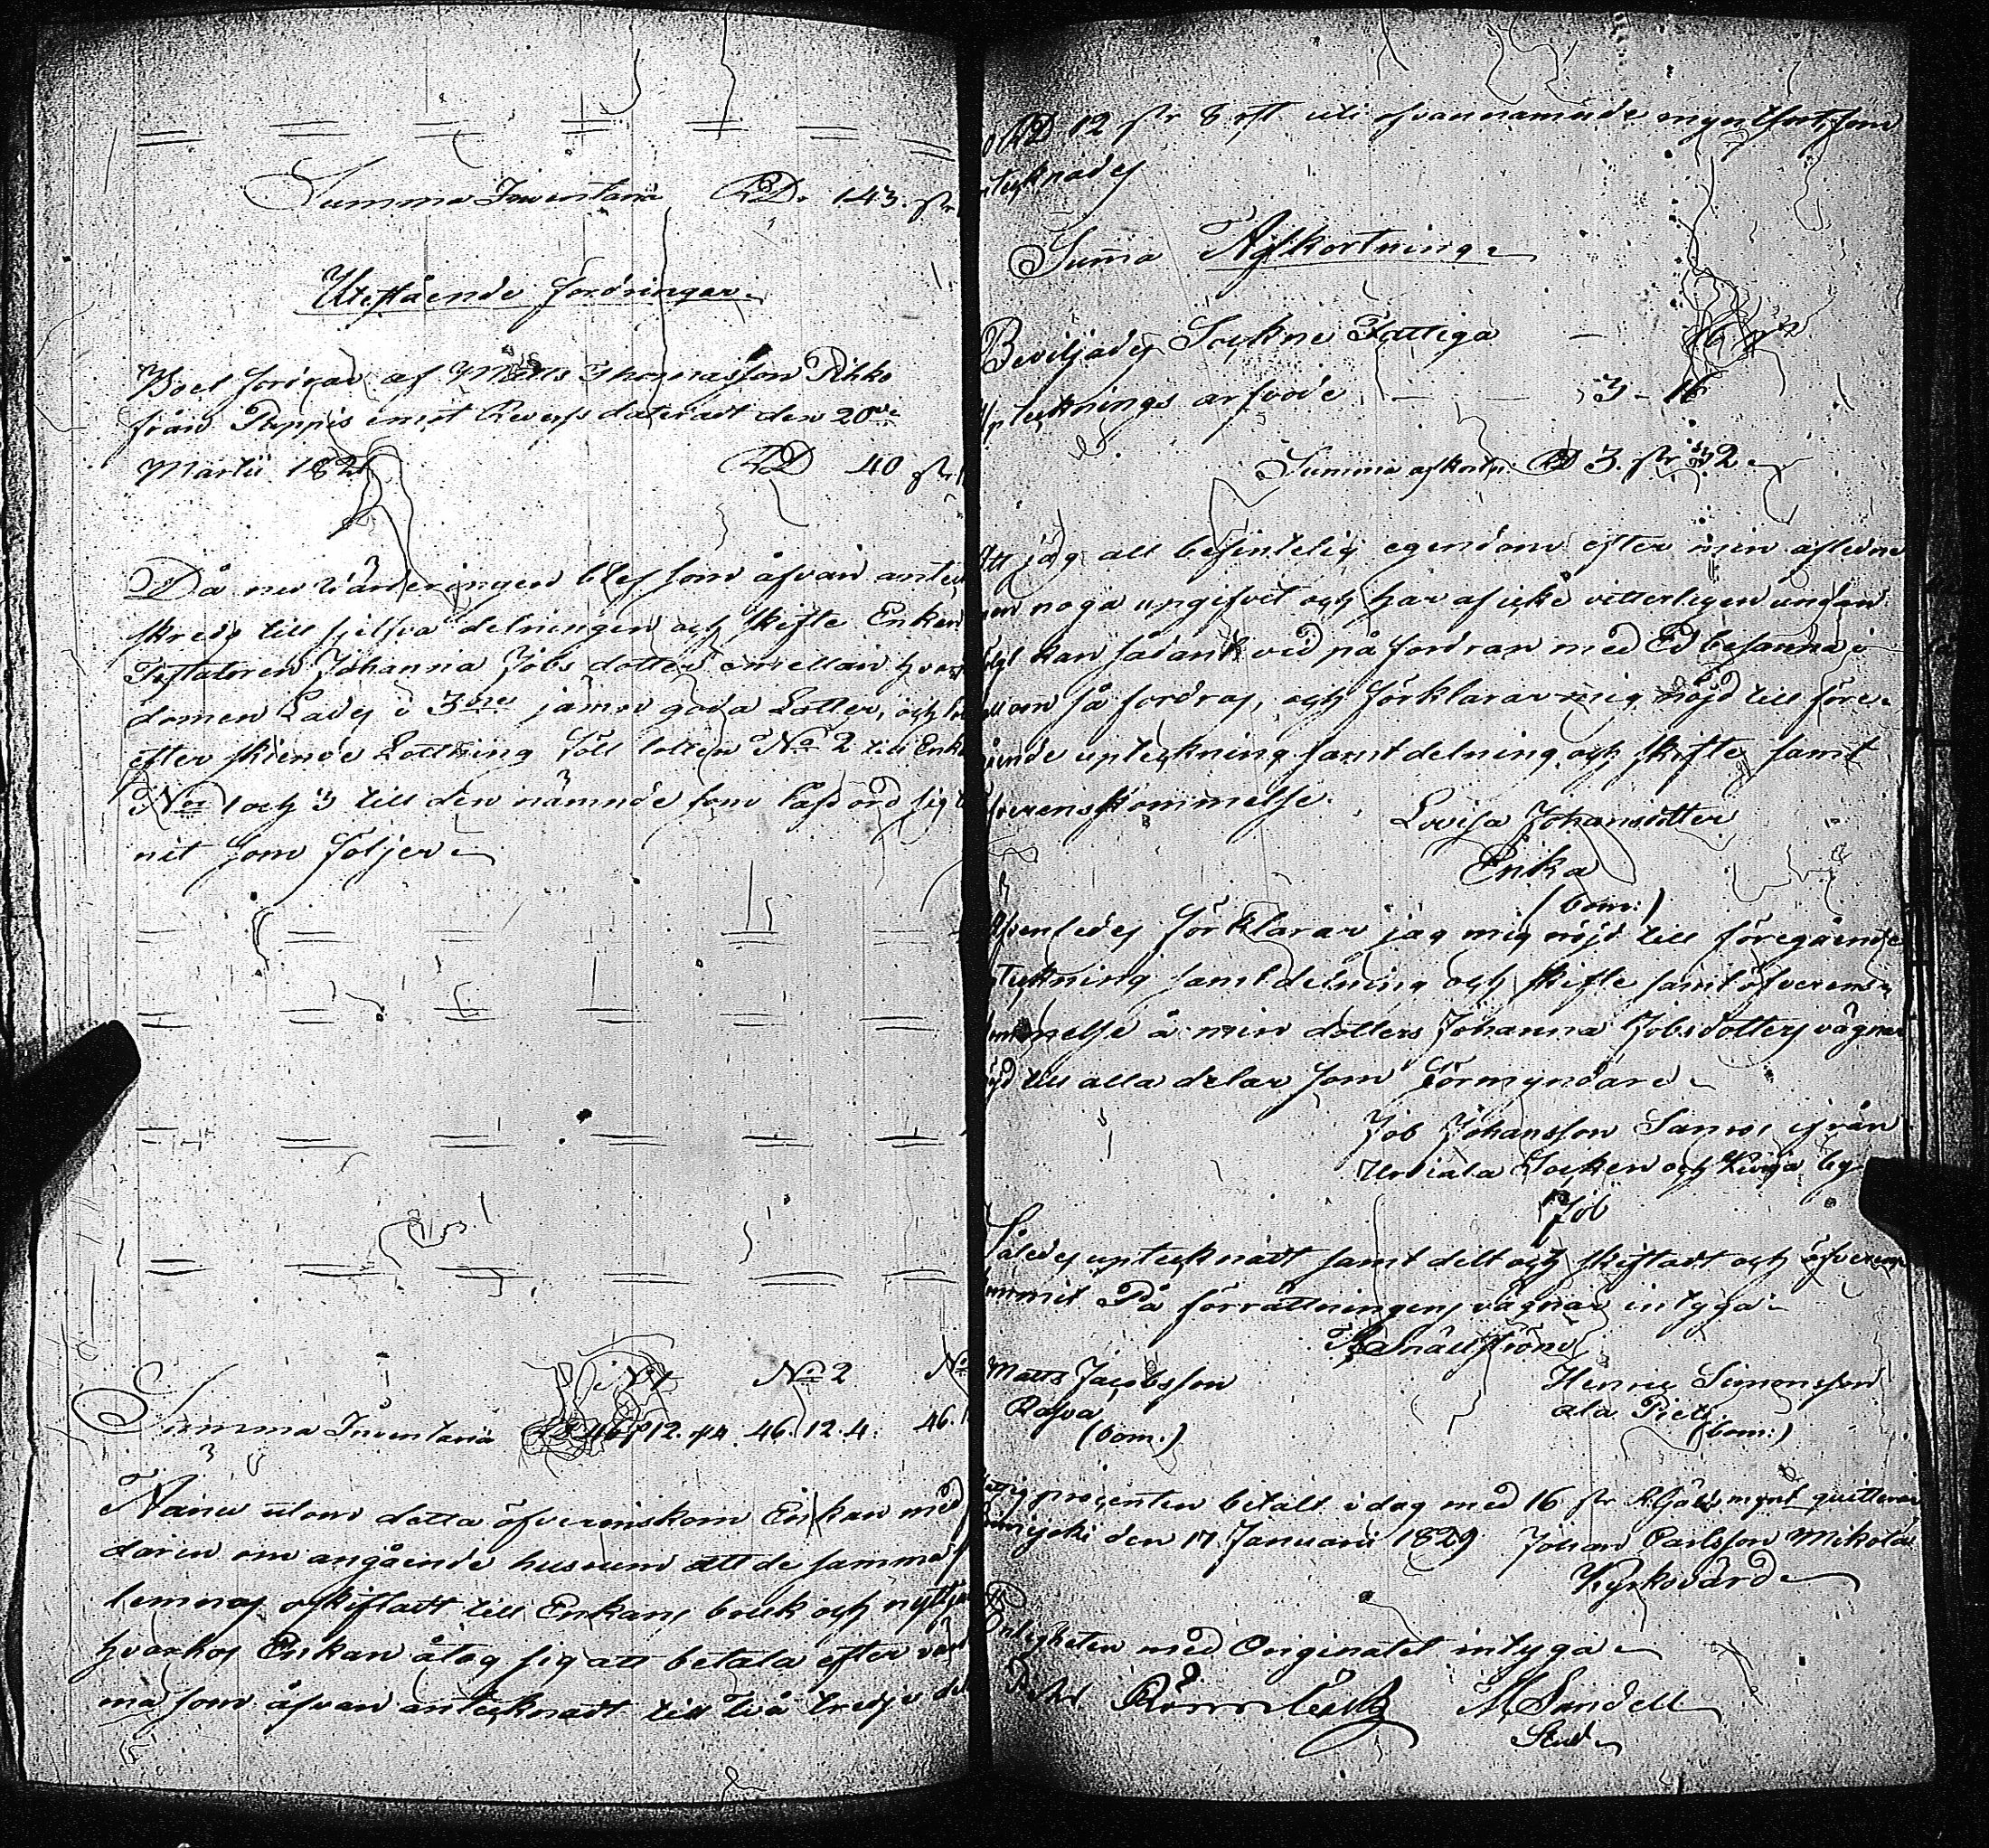 Summa Inventarii RD. 143. str
Utestående fordringar
Boet fordrar af Matts Thomasson Rihko
från Pappis emot Revers daterat den 20de
Martii 182 RD 40 str
Då nu värderingen blef som åfvan anteck
skreds till sjelfva delningen och skifte Enkan
Testatoren Johanna Jobs dotter emellan hvar
domen Lades i 3ne jämn goda Lotter, och
efter skiende Lottning föll lotten No 2 till Enk
Nor 1 och 3 till den nämnde som
nit som följer
No 1 No 2 No
Summa Inventarii 46. 12. 4. 46. 12. 4. 46.
Ännu utom detta öfverenskom Enkan med
daren om angående husrum att de samma
lemnas oskiftadt till Enkans bruk och nyttj
hvarhos Enkan åtog sig att betala efter vär
ma som åfvan antecknadt till två tredje del
RD 12 str 8 uti ofvannämnde myntsort som
tecknades
Summa Afkortning
Beviljades Sockne Fattiga —
pteknings arfvode — — 3 - 16
Summa afkortn. RD 3. str 32
Att jag all befintelig egendom efter min aflidne
noga upgifvit och har af icke vitterligen undan
kan sådant vid på fordran med Ed besanna
om så fordras, och förklarar mig nöjd till före
ende upteckning samt delning och skifte samt
öfverenskommelse. Lovisa Johansdotter
Enka
(bom:)
Äfvenledes förklarar jag mig nöjd till föregående
teckning samt delning och skifte samt öfverens
kommelse å min dotters Johanna Jobsdotters vägnar
nöjd till alla delar som Förmyndare
Job Johansson från
Urdiala Socken och by
Job
Således upteknadt samt delt och skiftadt och öfverens
kommit På förrättningens vägnar intyga
Matts Jacobsson Henric Simonsson
Rasva ala Pietj
(bom.) (bom:)
procenten betalt i dag med 16 str R.Gälds mynt quitterar
den 17 Januarii 1829 Johan Carlsson Mikola
Kyrkovärd
Enligheten med Originalet intyga
M Sundell
Stud